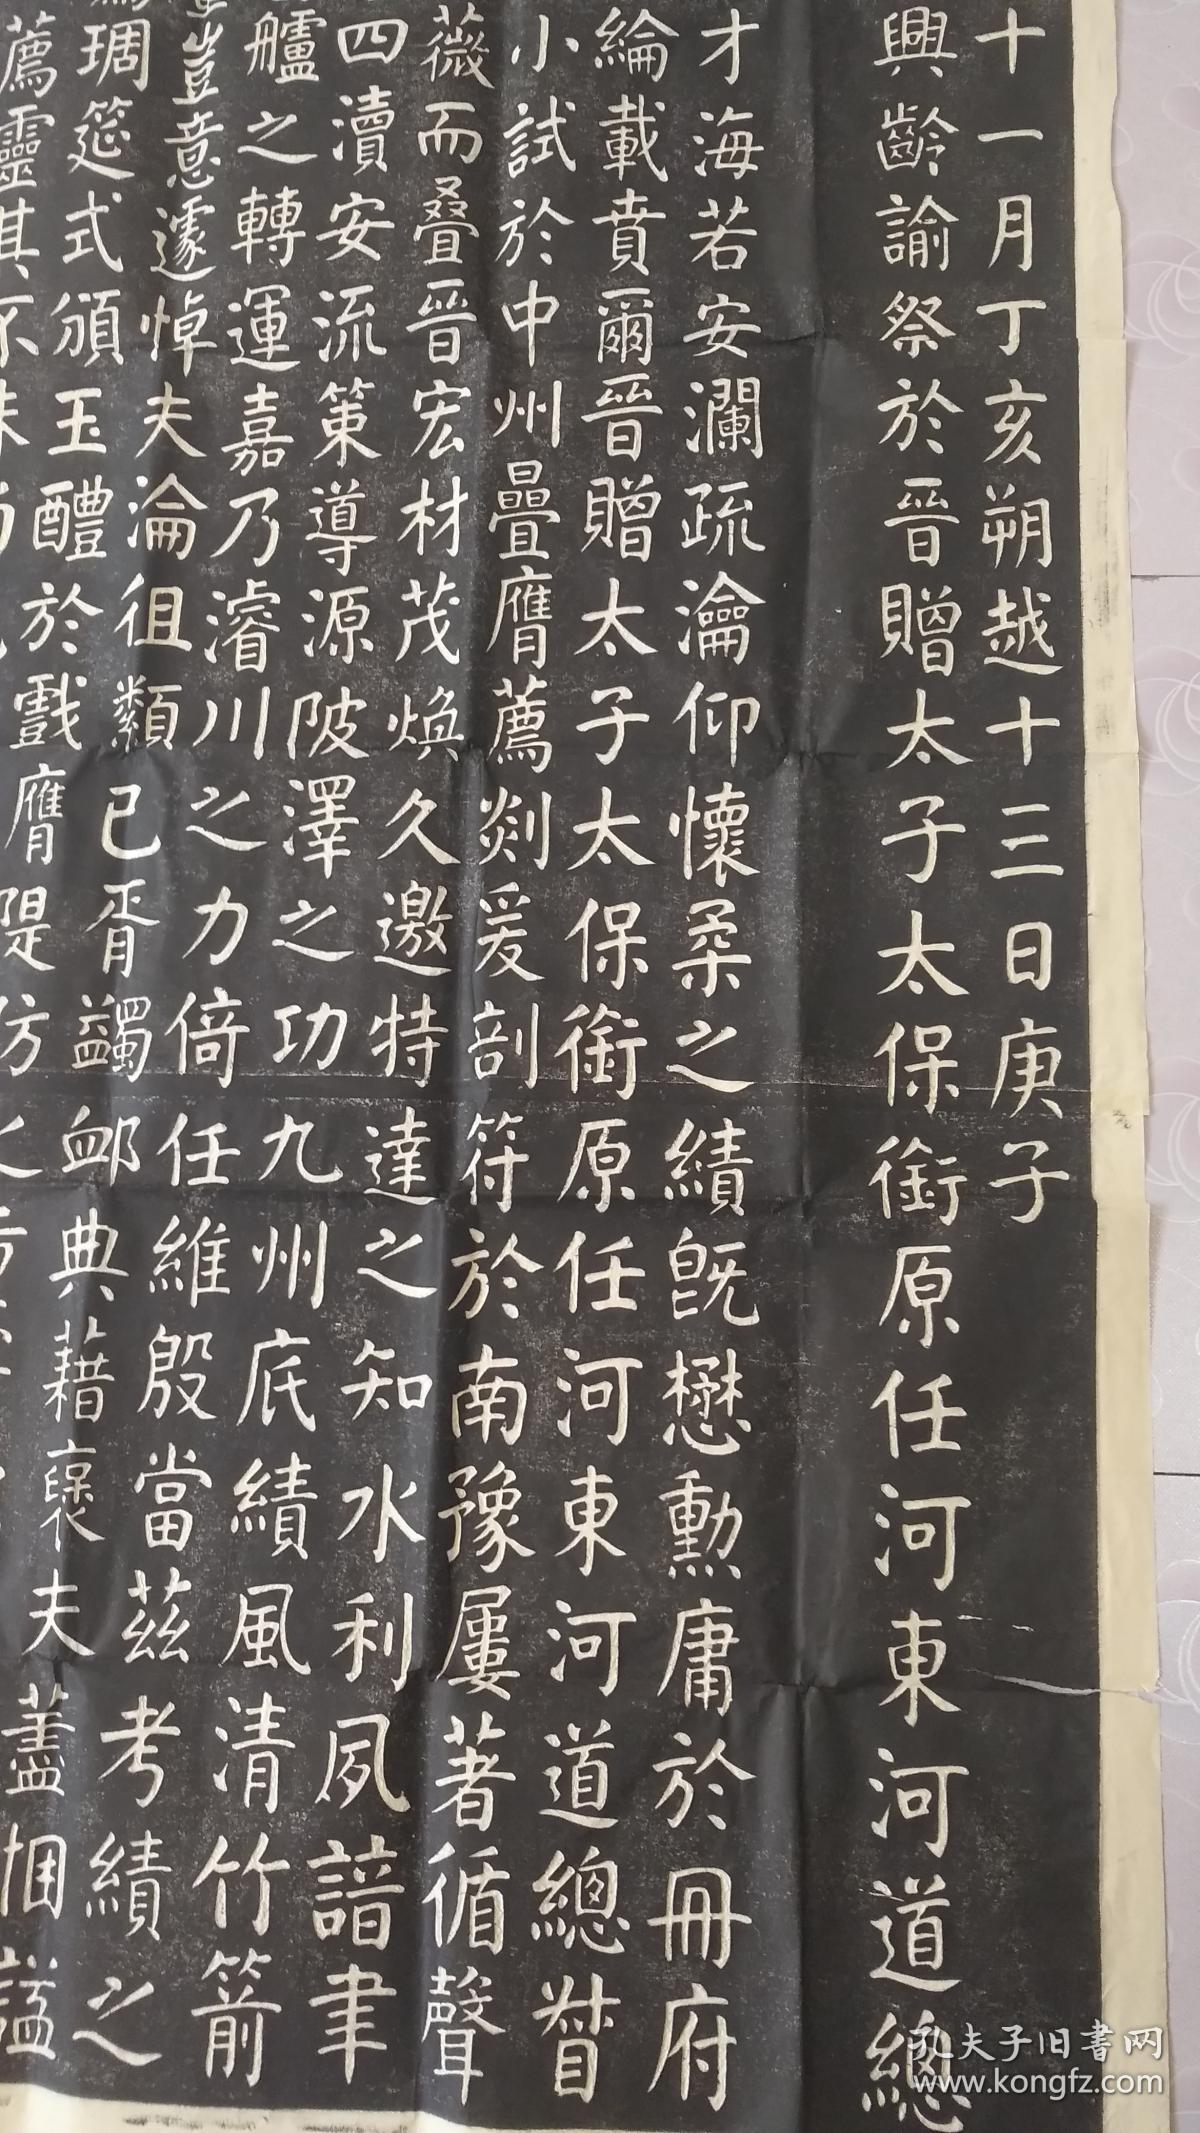 十一月丁亥朔越十三日庚子
興齡諭祭於晉贈太子太保銜原任河東河道總
才海若安瀾疏瀹仰懷柔之績既懋勳庸於冊府
綸載賁爾晉贈太子太保銜原任河東河道總督
小試於中州疊膺薦剡爰剖符於南豫屢著循聲
薇而疊晉宏材茂煥久邀特達之知水利夙諳聿
四瀆安流策導源陂澤之功九州底績風清竹箭
艫之轉運嘉乃濬川之力倚任維殷當茲考績之
豈意遽悼夫淪徂類已胥蠲卹典藉褒夫藎悃謚
琱筵式頒玉醴於戲膺隄防
薦靈其不昧尚
孔夫子旧书网
www.kongfz.com